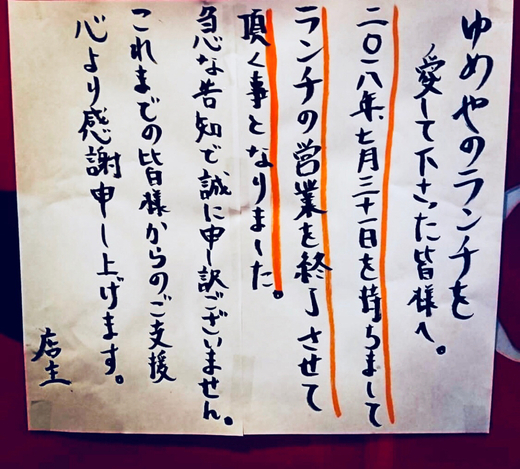 ゆめやのランチを
愛して下さった皆様へ。
二〇一八年、七月三十一日を持ちまして
ランチの営業を終了させて
頂く事となりました。
急な告知で誠に申し訳ございません。
これまでの皆様からのご支援
心より感謝申し上げます。
店主